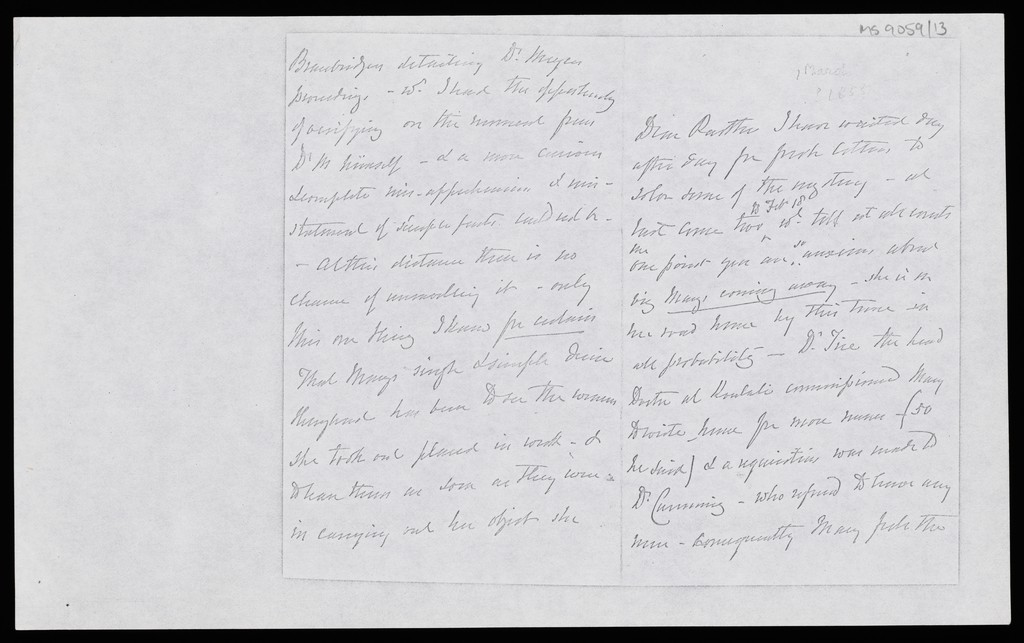 MS 9059/13
Bracebridges detailing Dr Meyer
proceedings - wh I had the opportunity
of verifying on the moment from
Dr M himself - & a more curious
& complete mis-apprehension & mis-
statement of simple facts could not be -
- At this distance there is no
chance of unravelling it - only
this one thing I know for certain
That Mary's single & simple desire
throughout has been to see the women
she took out placed in work - &
to leave them as soon as they were -
in carrying out her object she
March
1855
Dear I have waited day
after day for fresh letters to
solve some of the mystery - at
last come two wh tell at all events
13 Feb 18
me
one point you are so anxious about
viz Mary's coming away - she is on
her road home by this time in
all probability - Dr the head
Doctor at Koulali commissioned Mary
to write home for more nurses - (so
he said) & a requisition was made to
Dr Cumming - who refused to have any
more - consequently Mary feels the